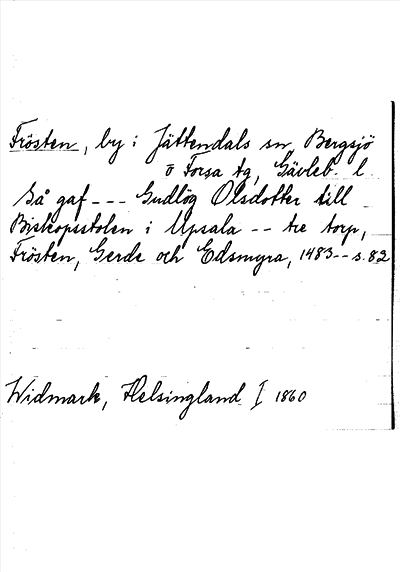 Frösten, by i Jättendals sn, Bergsjö
o Forsa tg, Gävleb. l.
Så gaf --- Gudlög Olsdotter till
Biskopsstolen i Upsala -- tre torp,
Frösten, Gerde och Edsmyra, 1483 -- s. 82
Widmark, Helsingland I 1860